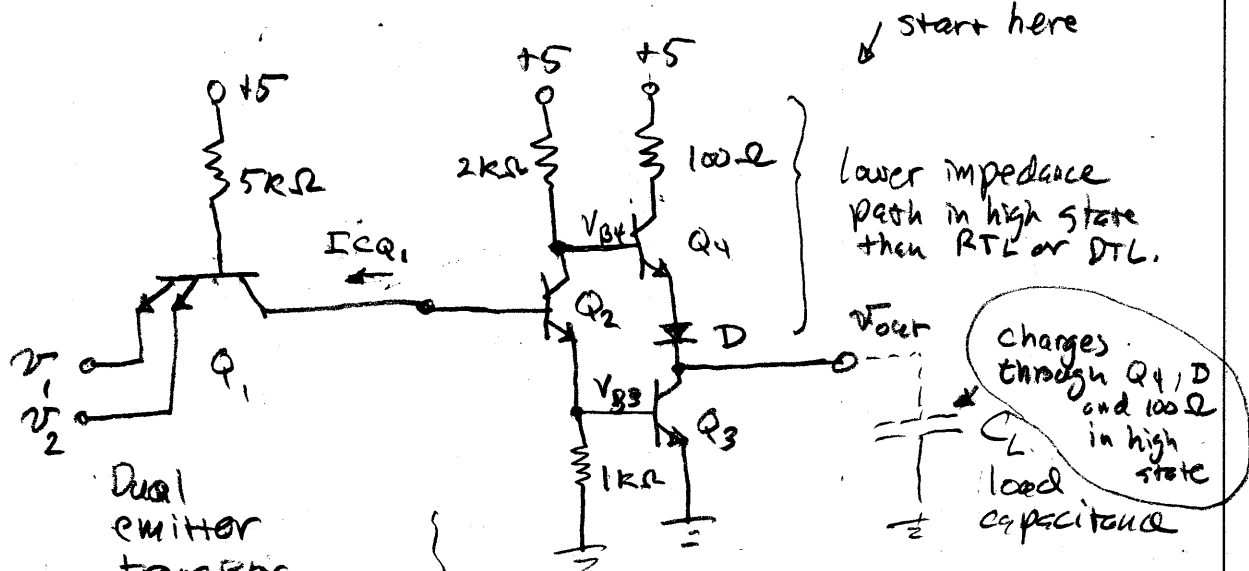 start here
+5
+5
+5
5kΩ
2kΩ
100Ω
lower impedance
path in high state
than RTL or DTL.
VB4
Q4
ICQ1
Q2
D
Vout
v1
v2
Q1
VB3
Q3
1kΩ
charges
through Q4, D
and 100Ω
in high
state
CL
load
capacitance
Dual
emitter